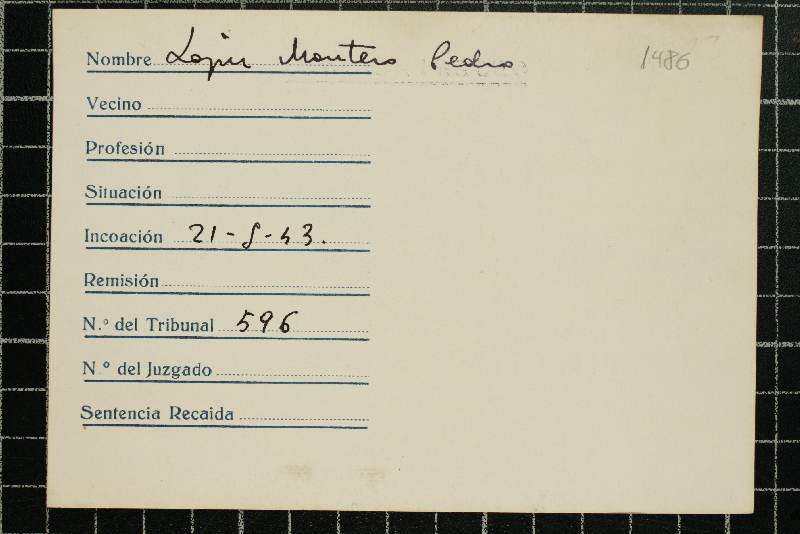 Nombre López Montero Pedro 1486
Vecino
Profesión
Situación
Incoación 21-8-43.
Remisión
N.º del Tribunal 596
N.º del Juzgado
Sentencia Recaida